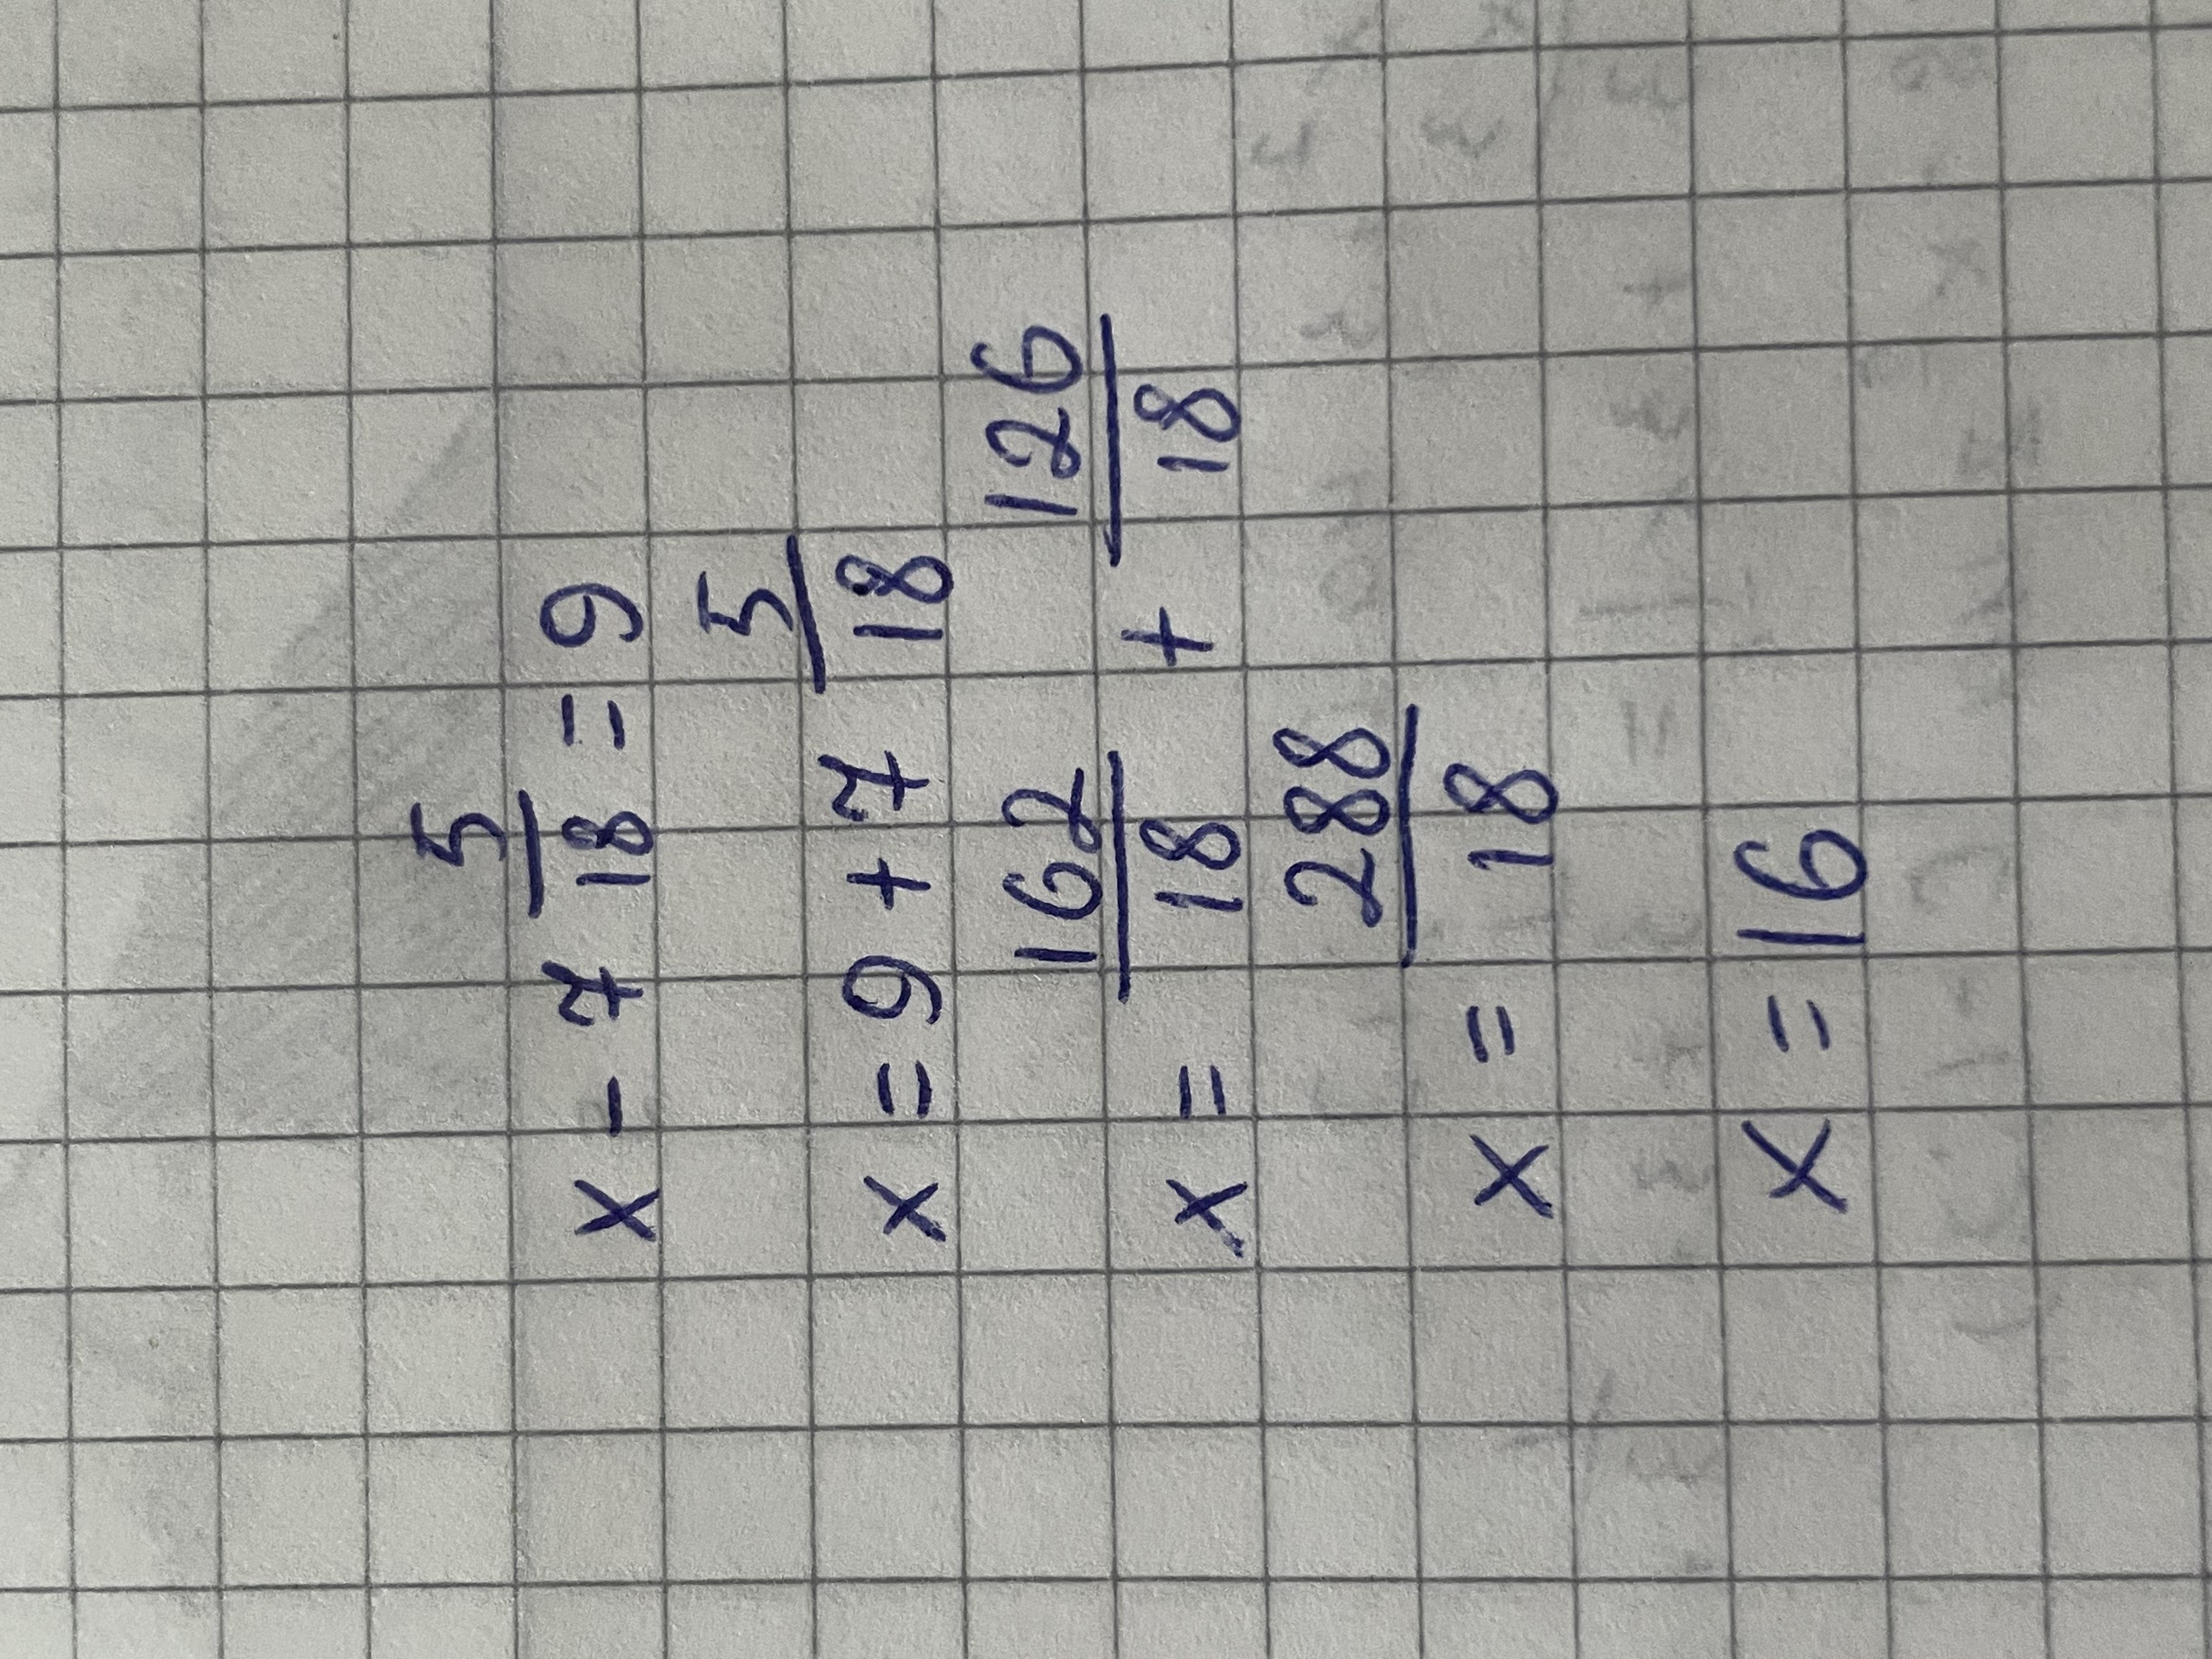 x - 7 5/18 = 9
x = 9 + 7 5/18
x = 162/18 + 126/18
x = 288/18
x = 16